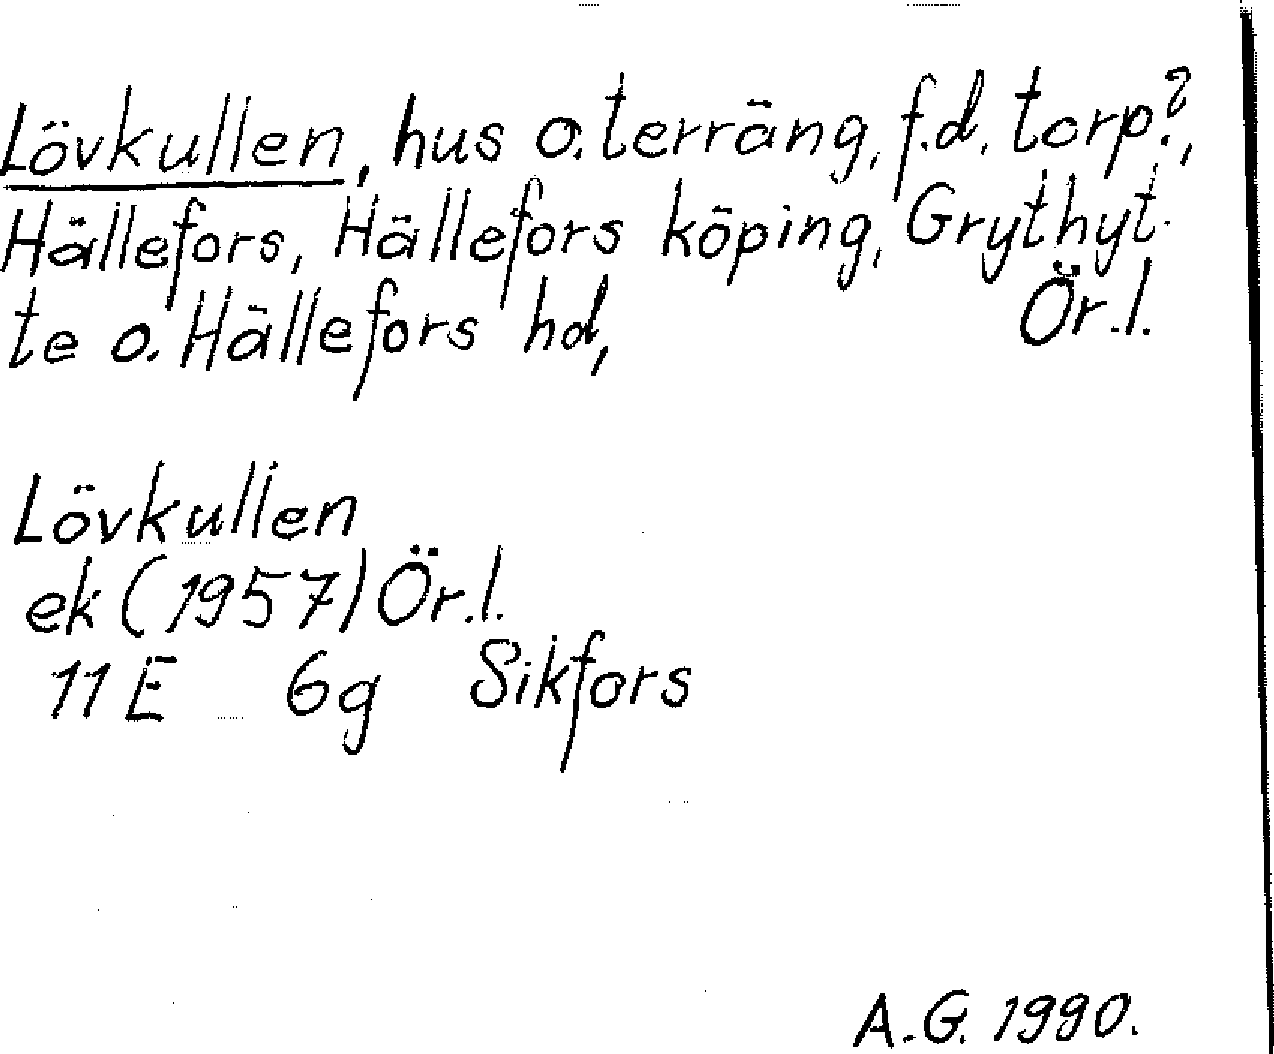 Lövkullen, hus o. terräng, f.d. torp?,
Hällefors, Hällefors köping, Grythyt-
te o. Hällefors hd, Ör.l.
Lövkullen
ek (1957) Ör.l.
11 E 6g Sikfors
A.G. 1990.